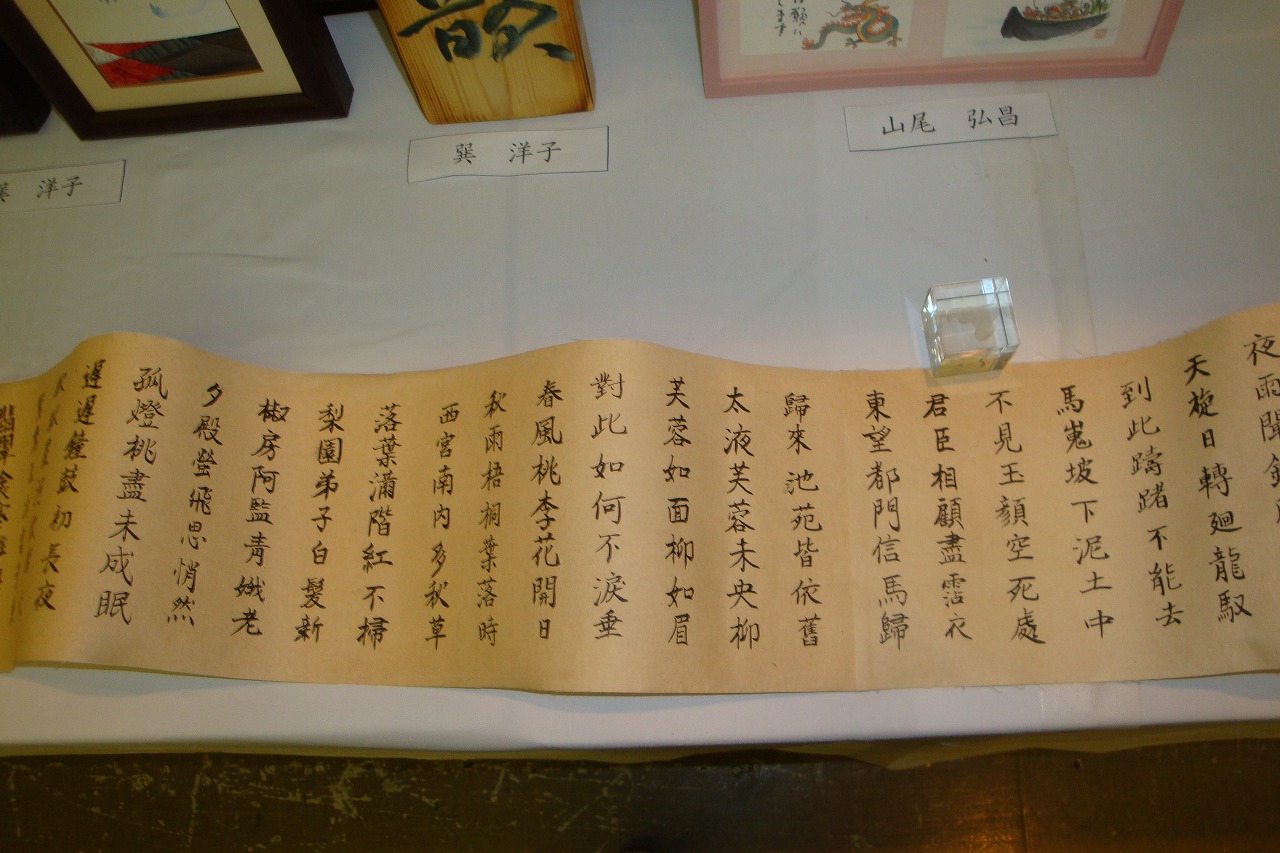 洋子
巽 洋子
山尾 弘昌
します
夜雨聞
天旋日轉廻龍馭
到此躊躇不能去
馬嵬坡下泥土中
不見玉顔空死處
君臣相顧盡霑衣
東望都門信馬歸
歸來池苑皆依舊
太液芙蓉未央柳
芙蓉如面柳如眉
對此如何不淚垂
春風桃李花開日
秋雨梧桐葉落時
西宮南内多秋草
落葉滿階紅不掃
梨園弟子白髮新
椒房阿監青娥老
夕殿螢飛思悄然
孤燈桃盡未成眠
遲遲鐘鼓初長夜